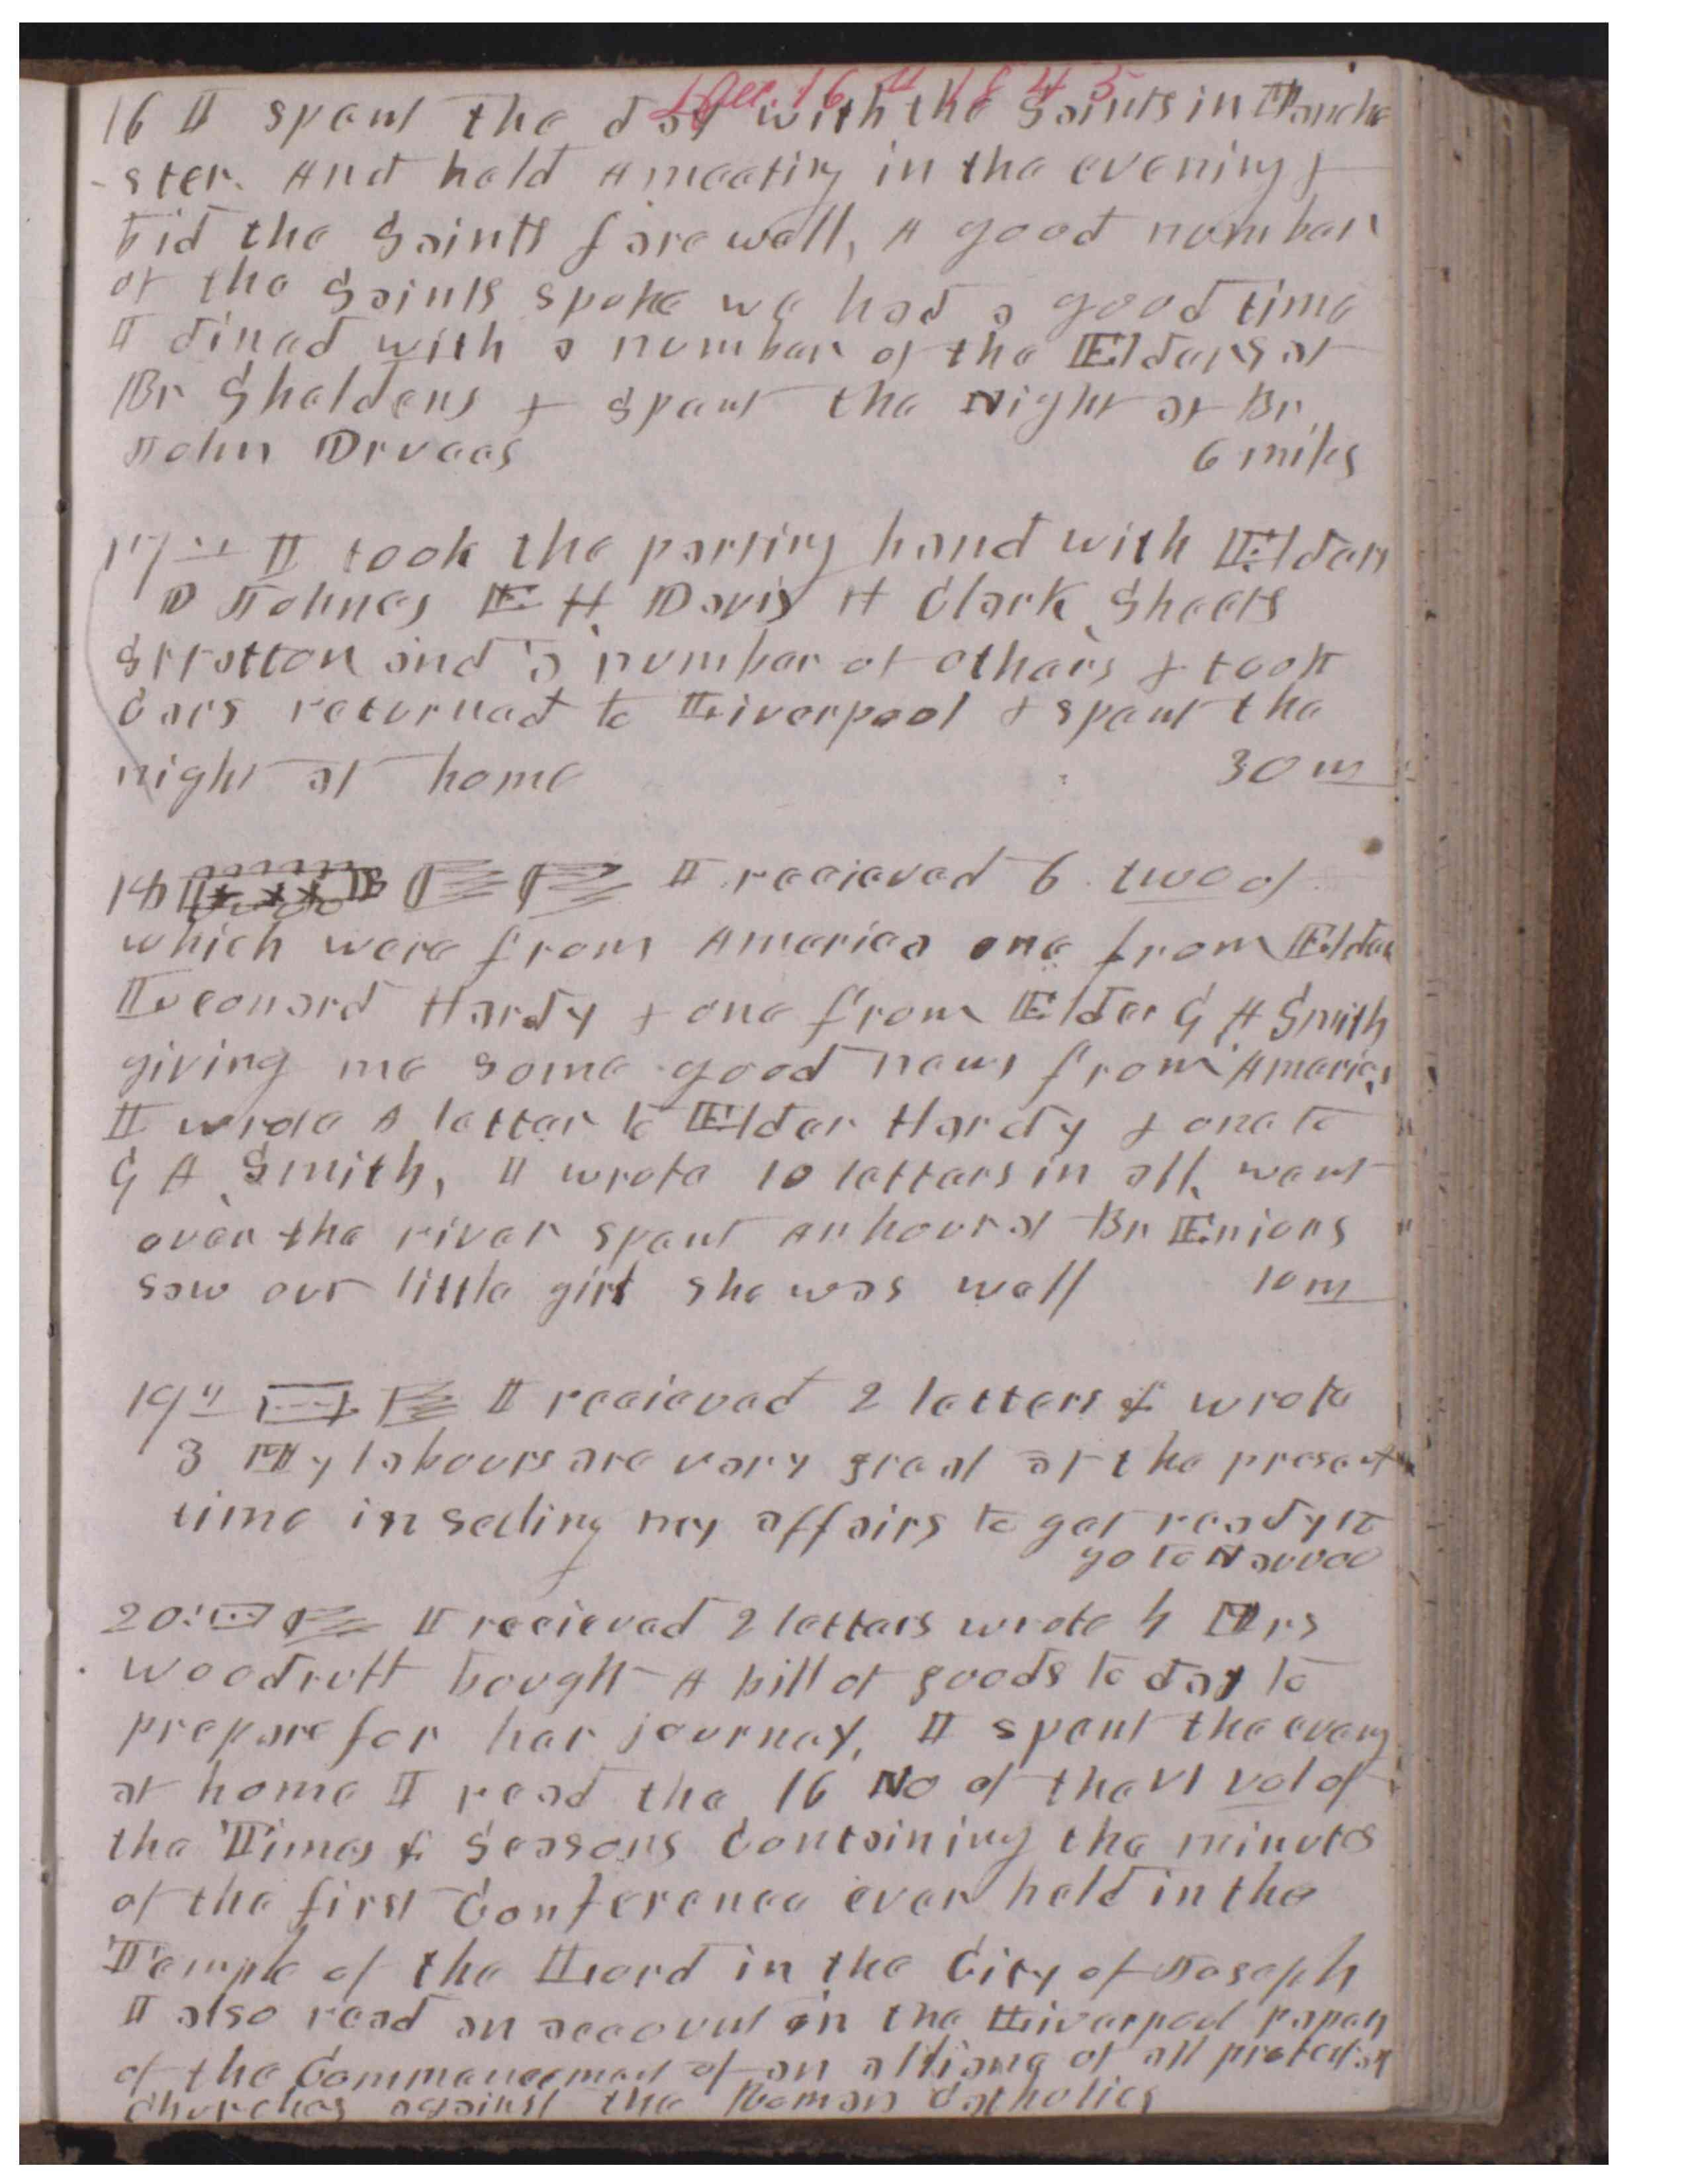 Dec. 16th 1845
16 I spent the day with the Saints in Manche
-ster. And held A meeting in the evening &
bid the Saints farewell, A good number
of the Saints spoke we had a good time
I dined with a number of the Elders at
Br Sheldens & spent the Night at Br
John Druces 6 miles
17th I took the parting hand with Elders
D Johnes E H Davis H Clark Sheets
Stratton and a number of others & took
Cars returned to Liverpool & spent the
night at home 30 m
18 I recieved 6 two of
which were from America one from Elder
Leonard Hardy & one from Elder G A Smith
giving me some good news from America
I wrote A letter to Elder Hardy & one to
G A Smith, I wrote 10 letters in all, went
over the river spent an hour at Br Enions
saw our little girl she was well 10 m
19th I recieved 2 letters & wrote
3 My labours are very great at the present
time in setling my affairs to get ready to
go to Nauvoo
20th I recieved 2 letters wrote 4 Mrs
Woodruff bought A bill of goods to day to
prepare for her journey, I spent the eveng
at home I read the 16 No of the VI vol of
the Times & Seasons Containing the minutes
of the first Conference ever held in the
Temple of the Lord in the City of Joseph
I also read an account in the Liverpool paper
of the Commencement of an alliance of all protestant
Churches against the Roman Catholics